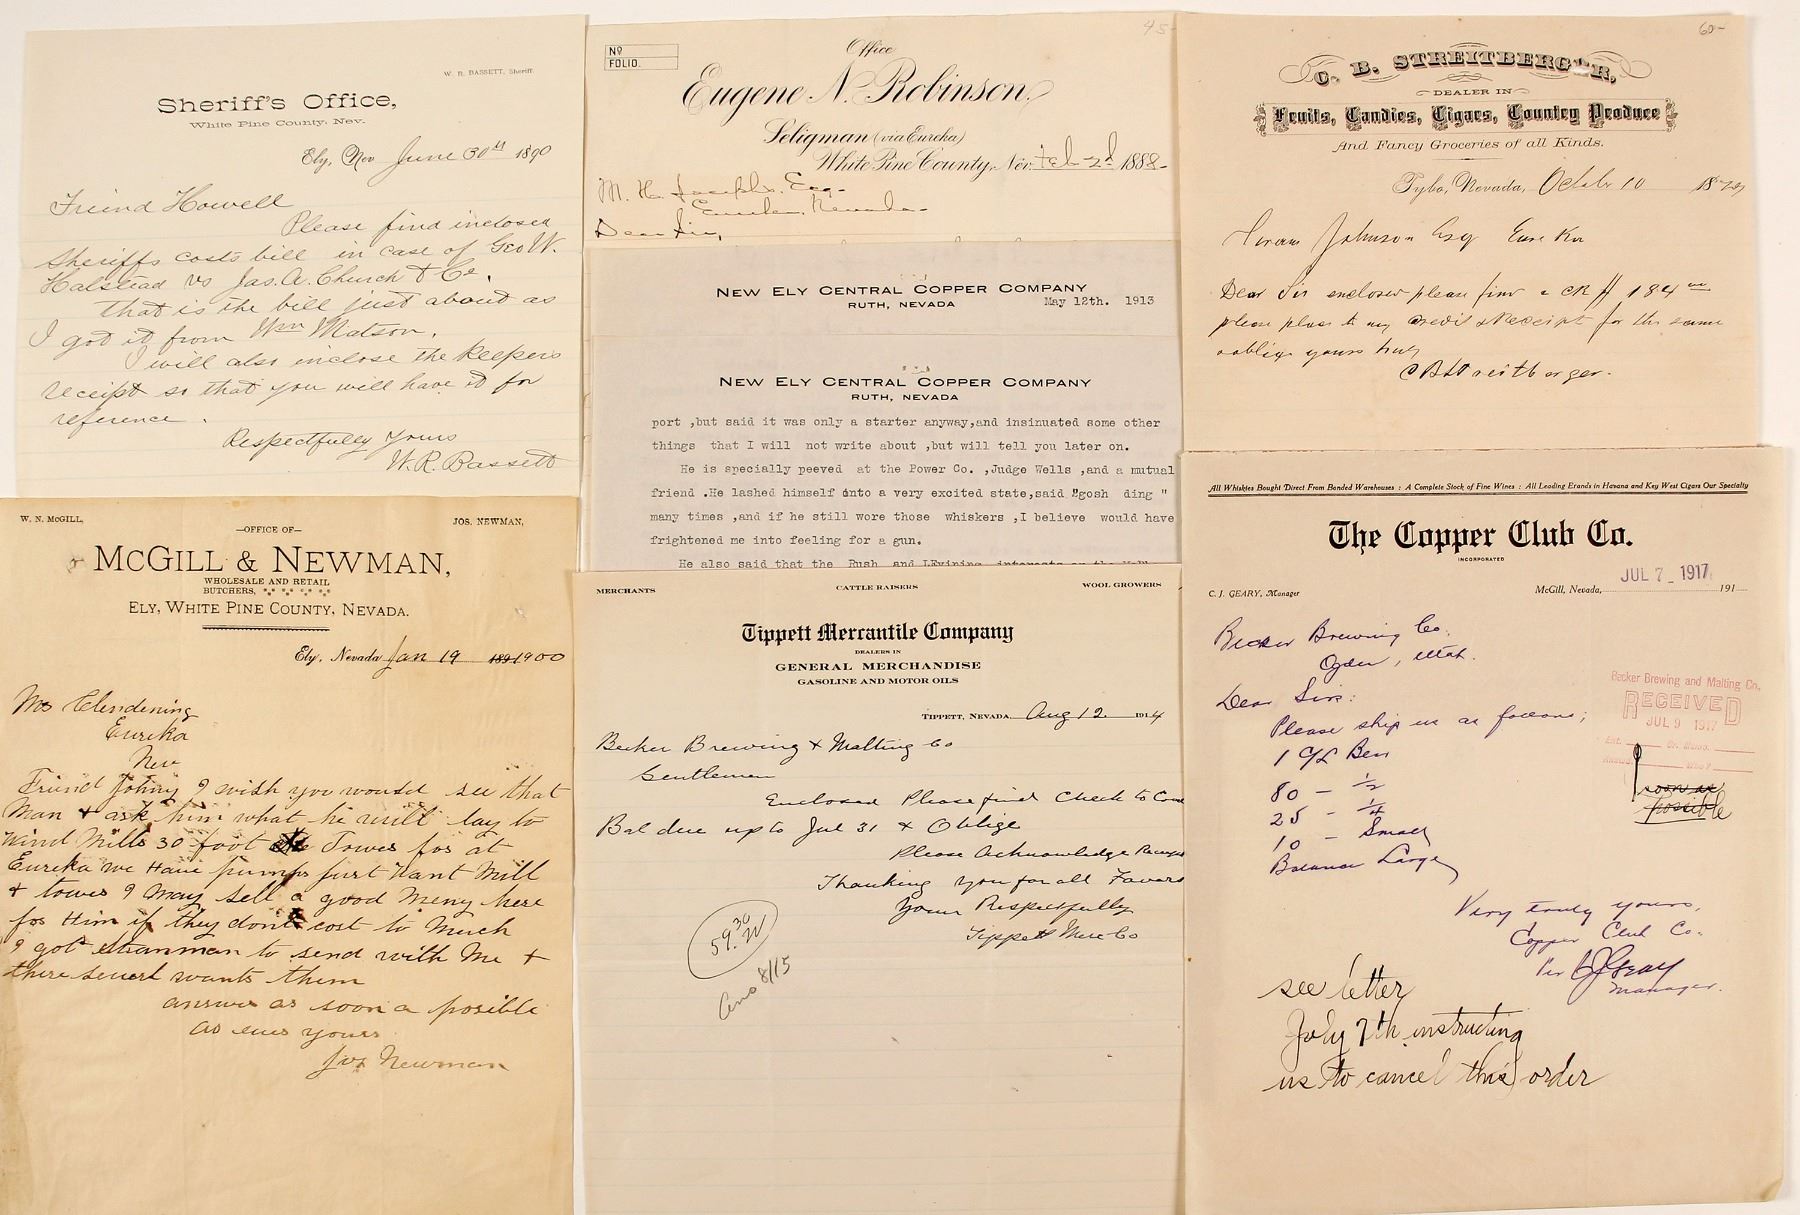 W. R. BASSETT, Sheriff.
Sheriff's Office,
White Pine County, Nev.
Ely, Nev June 30th 1890
Friend Howell
Please find inclosed
Sheriffs costs bill in case of Geo W.
Halstead vs Jas. A. Church & Co.
That is the bill just about as
I got it from Wm Matson.
I will also inclose the Keepers
receipt so that you will have it for
reference.
Respectfully Yours
W. R. Bassett
No
FOLIO.
45-
Office
Eugene N. Robinson,
Seligman (via Eureka)
White Pine County, Nev. Feb 2d 1888-
M. H. Josephs. Esq-
Eureka, Nevada-
Dear Sir,
NEW ELY CENTRAL COPPER COMPANY
RUTH, NEVADA
May 12th. 1913
NEW ELY CENTRAL COPPER COMPANY
RUTH, NEVADA
port ,but said it was only a starter anyway,and insinuated some other
things that I will not write about ,but will tell you later on.
He is specially peeved at the Power Co. ,Judge Wells ,and a mutual
friend .He lashed himself into a very excited state,said "gosh ding "
many times ,and if he still wore those whiskers ,I believe would have
frightened me into feeling for a gun.
He also said that the Rush and
60-
C. B. STREITBERGER,
DEALER IN
Fruits, Candies, Cigars, Country Produce
And Fancy Groceries of all Kinds.
Tybo, Nevada, October 10
Hiram Johnson Esq Eureka
Dear Sir enclosed please find a ck # 184 00
please place to my credit & Receipt for the same
& oblige yours truly
C B Streitberger.
W. N. McGILL,
—OFFICE OF—
JOS. NEWMAN,
McGILL & NEWMAN,
WHOLESALE AND RETAIL
BUTCHERS,
ELY, WHITE PINE COUNTY, NEVADA.
Ely, Nevada Jan 19 189 1900
Mr Clendening
Eureka
Nev
Friend Johny I wish you would see that
Man & ask him what he will lay to
Wind Mills 30 foot Tower for at
Eureka we Have pumps just Want Mill
& tower I may sell a good meny here
for Him if they dont cost to Much
I got to send with Me &
there severl wants them
answer as soon a posible
as ever yours
Jos Newman
MERCHANTS
CATTLE RAISERS
WOOL GROWERS
Tippett Mercantile Company
DEALERS IN
GENERAL MERCHANDISE
GASOLINE AND MOTOR OILS
TIPPETT, NEVADA, Aug 12 1914
Becker Brewing & Malting Co
Gentlemen
Enclosed Please find Check to Cover
Bal due up to Jul 31 & Oblige
Please Acknowledge
Thanking you for all Favors
Yours Respectfully
Tippett Merc Co
59.30
8/15
All Whiskies Bought Direct From Bonded Warehouses : A Complete Stock of Fine Wines : All Leading Brands in Havana and Key West Cigars Our Specialty
The Copper Club Co.
INCORPORATED
JUL 7 _ 1917
C. J. GEARY, Manager
McGill, Nevada, 191
Becker Brewing Co.
Ogden, Utah.
Dear Sirs:
Please ship us as follows;
1 C/L Beer
80 - 1/2
25 - 1/4
10 - Small
Balance Large
Becker Brewing and Malting Co.,
RECEIVED
JUL 9 1917
soon as
possible
Very truly yours,
Copper Club Co.
Per C J Geary
Manager.
see letter
July 7th instructing
us to cancel this order